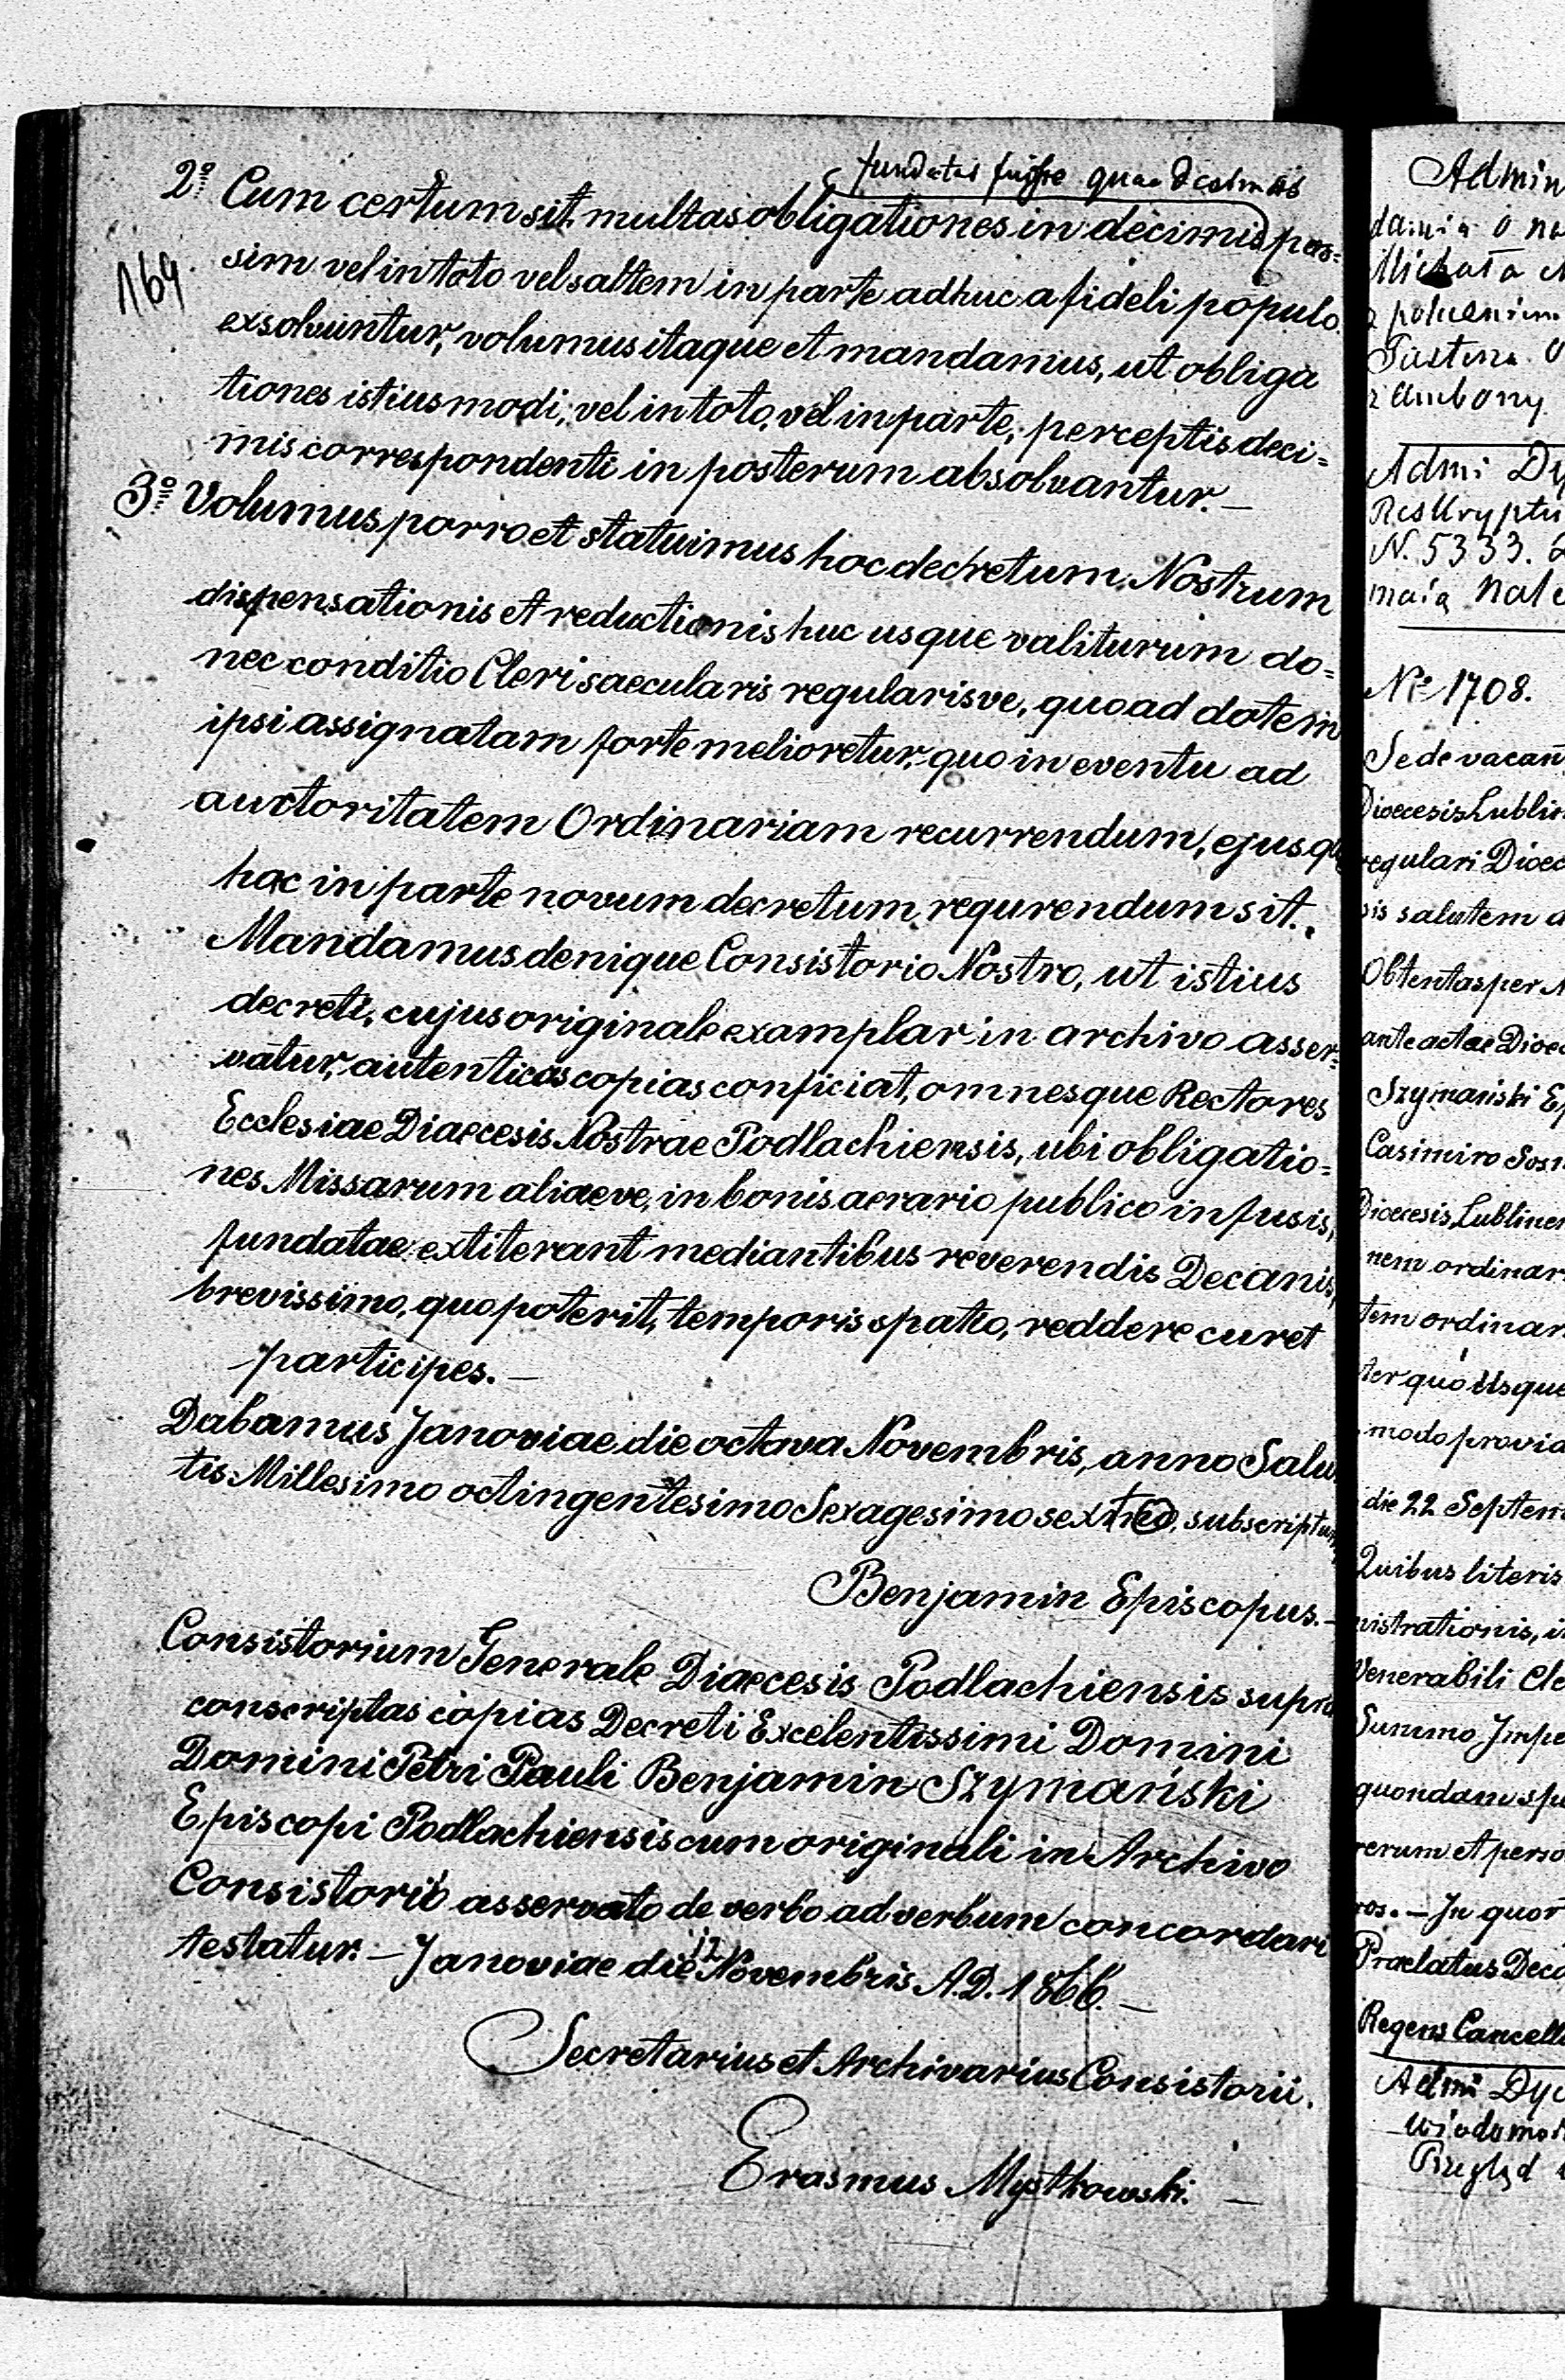 fundatas fuisse quae decimas
2º Cum certum sit multas obligationes in decimis pas=
sim vel in toto vel saltem in parte adhuc a fideli populo
169
exsolvuntur, volumus itaque et mandamus, ut obliga
tiones istius modi, vel in toto, vel in parte, perceptis deci=
mis correspondenti in posterum absolvantur.—
3º Volumus porro et statuimus hoc decretum Nostrum
dispensationis et reductionis huc usque valiturum do=
nec conditio Cleri saecularis regularisve, quoad dotem
ipsi assignatam forte melioretur, quo in eventu ad
auctoritatem Ordinariam recurrendum, ejusq
hac in parte novum decretum requrendum sit.
Mandamus denique Consistorio Nostro, ut istius
decreti, cujus originale examplar in archivo asser=
vatur, autenticas copias conficiat, omnesque Rectores
Ecclesiae Diaecesis Nostrae Podlachiensis, ubi obligatio=
nes Missarum aliaeve, in bonis aerario publico infusis,
fundatae extiterant mediantibus reverendis Decanis,
brevissimo, quo poterit, temporis spatio, reddere curet
participes.—
Dabamus Janoviae die octava Novembris, anno Salu
tis Millesimo octingentesimo Sexagesimo sexto, subscriptum
Benjamin Episcopus.—
Consistorium Generale Diaecesis Podlachiensis supra
conscriptas copias Decreti Excelentissimi Domini
Domini Petri Pauli Benjamin Szymański
Episcopi Podlachiensis cum originali in Archivo
Consistorii asservato de verbo ad verbum concordari
testatur.— Janoviae die 12 Novembris A.D. 1866.—
Secretarius et Archivarius Consistorii.
Erasmus Mystkowski.—
Admin
dania o na
Michała
z poleceniem
z ambony
Admi Dy
Reskryptu
N. 5333. 2
maia nale
Nr 1708.
Sede vacan
Dioecesis Lublin
regulari Dioec
sis salutem a
Obtentas per N
ante actae Dioec
Szymański Ep
Casimiro Sosn
Dioecesis Lubliner
nem ordinar
tem ordinar
ter quo usque
modo provia
die 22 Septem
Quibus literis
nistrationis, i
Venerabili Cle
Summo Impe
quondam spe
rerum et perso
ros.— In quor
Praelatus Deca
Regens Cancella
Admi Dyc
wiadomoś
Przegląd